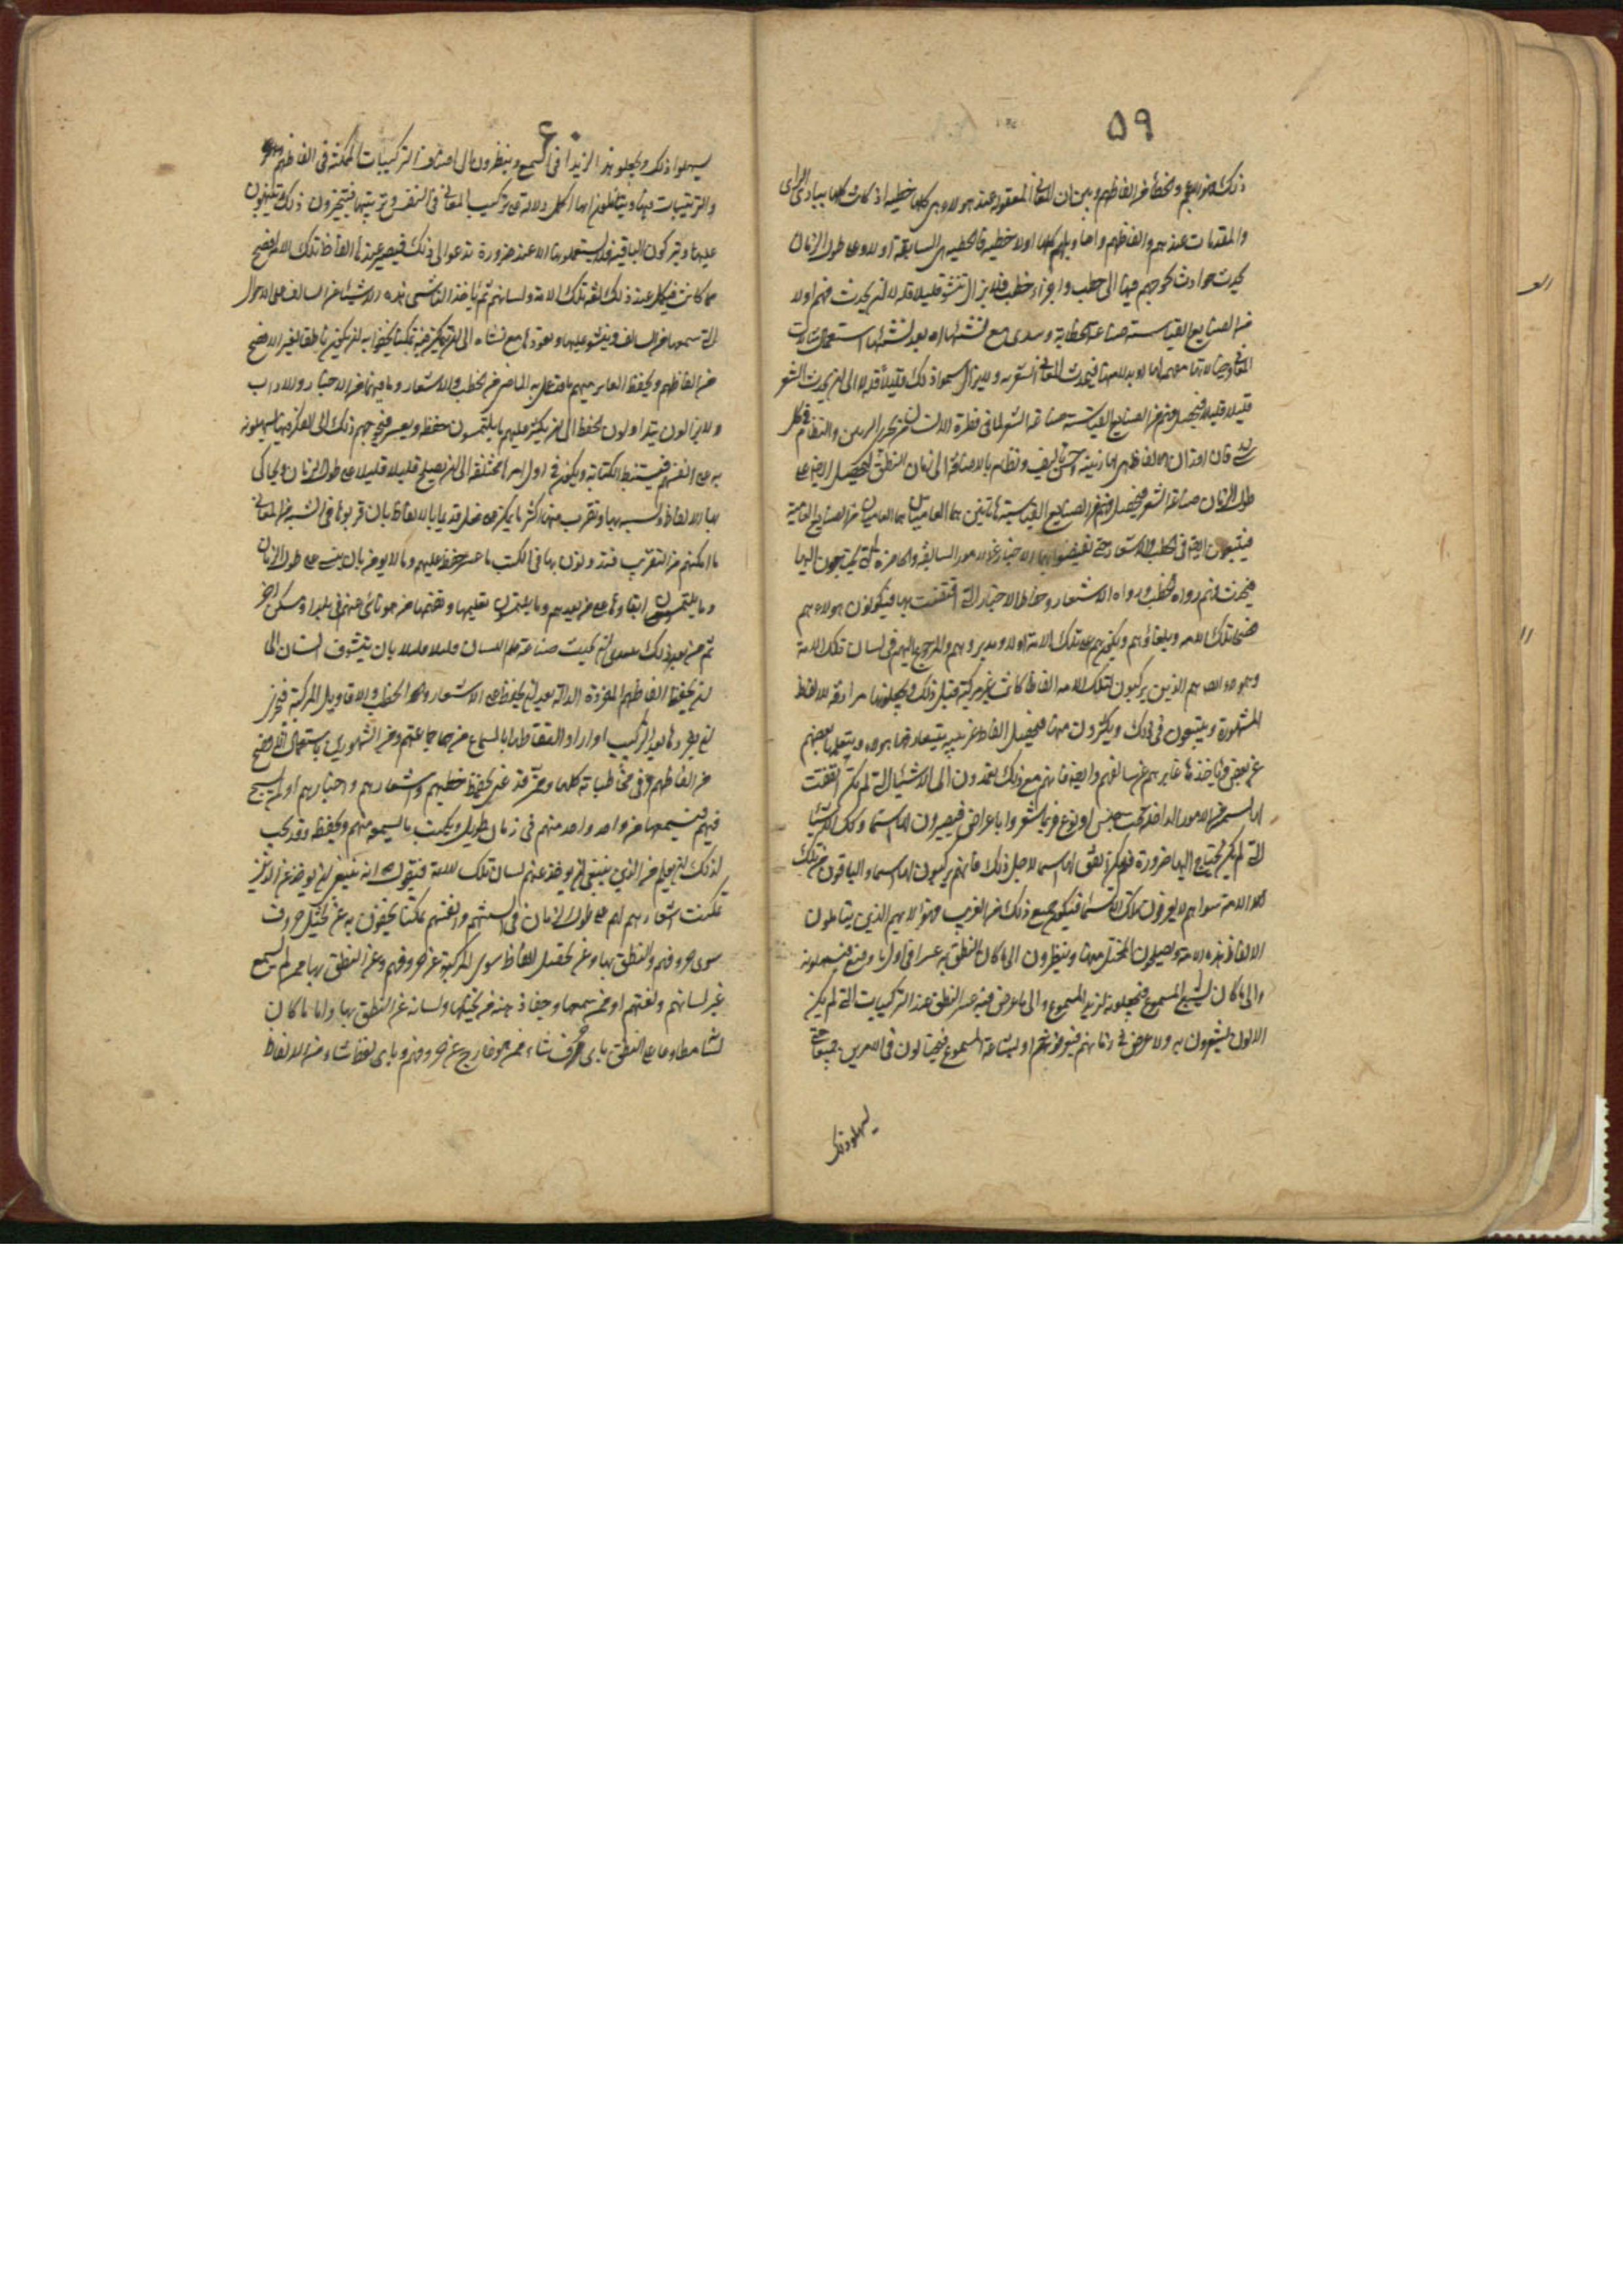 ٥٩
ذلك هو والخطأ من الفاظهم وبين ان المعاني المعقولة عند هولاء هي كلها خطبيه اذ كانت كلها ببادى الراى
والمقدمات عندهم والفاظهم واقاويلهم كلها اولا خطبية فالخطبيه هى السابقة اولا وعلى طول الزمان
يحدث حوادث تحوجهم فيها الى خطب واجزاء خطب فلا يزال تنشو قليلا قليلا الى ان يحدث فيهم اولا
من الصنايع القياسية صناعة الخطابة ويبتدى مع نشئها او بعد نشئها استعمال مثالات
المعاني وخيالاتها مفهمه لها او بدلا منها فيحدث المعاني الشعريه ولا يزال ينمو ذلك قليلا قليلا الى ان يحدث الشعر
قليلا قليلا فيحصل فيهم من الصنايع القياسية صناعة الشعر لما في فطرة الانسان من تحرى الترتيب والنظام في كل
شى فان اوزان الالفاظ هى لها زينة وحسن تاليف ونظام بالاضافة الى زمان النطق فيحصل ايضا على
طول الزمان صناعة الشعر فيحصل فيهم من الصنايع القياسية هاتين هما العاميتان من الصنايع القياسية
فيتبعون ايضا في الخطب والاشعار حتى يقتضوا بها الاخبار عن الامور السالفة والحاضرة التى يحتاجون اليها
فيحدث فيهم رواه الخطب ورواه الاشعار وحفاظ الاخبار التى اقتصت بها فيكونون هولاء هم
فصحاء تلك الامه وبلغاؤهم ويكونون هم حكماء تلك الامة اولا ومدبروهم والمرجوع اليهم في لسان تلك الامة
وهولاء ايضا هم الذين يركبون لتلك الامه الفاظا كانت غير مركبة قبل ذلك ويجعلونها مرادفة للالفاظ
المشهورة ويمعنون في ذلك ويكثرون منها فيحصل الفاظ غريبه يتعارفها هولاء ويتعلمها بعضهم
عن بعض وياخذها غابرهم عن سالفهم وايضا فانهم مع ذلك يعمدون الى الاشياء التى لم يكن اتفقت
لها تسمية من الامور الداخلة تحت جنس او نوع فربما شعروا باعراض فيصيرون لها اسماء وكذلك الاشياء
التى لم يكن يحتاج اليها ضرورة فلم يكن اتفق لها اسماء لاجل ذلك فانهم يركبون لها اسماء والباقون من تلك
الامة سواهم لا يعرفون تلك الاسماء فيكون جميع ذلك من الغريب فهولاء هم الذين يتاملون
الالفاظ هذه الامة ويصلحون المختل منها وينظرون الى ما كان النطق به عسرا في اول ما وضع فيسهلونه
والى ما كان بشع المسموع فيجعلونه لذيذ المسموع والى ما عرض فيه عسر النطق عند التركيبات التى لم يكن
الاولون يشعرون به ولا عرض في زمانهم فيعرفونه او بشاعة المسموع فيحتالون في الامرين جميعا حتى
يسهلوا ذلك
٦٠
يسهلوا ذلك ويجعلوا هذا لذيذا في السمع وينظرون الى اصناف التركيبات الممكنة في الفاظهم
والترتيبات فيها ويتاملون ايها اكمل دلالة على تركيب المعاني في النفس وترتيبها فيتحرون ذلك وينبهون
عليها ويتركون الباقية فلا يستعملونها الا عند ضرورة تدعوا الى ذلك فيصير عندها الفاظ تلك الامه افصح
مما كانت فيكمل عند ذلك لغة تلك الامة ولسانهم ثم ياخذ الناشى هذه الاشياء عن السالف على الاحوال
التى سمعها من السالف وينشو عليها ويتعودها مع من نشاه الى ان يتمكن فيه تمكنا يجفوا به ان يكون ناطقا بغير الافصح
من الفاظهم ويحفظ الغابر منهم ما قد عمل به الماضى من الخطب والاشعار وما فيها من الاخبار والاداب
ولا يزالون يتداولون الحفظ الى ان يكثر عليهم ما يلتمسون حفظه ويعسر فيحوجهم ذلك الى الفكر فيما يسهلونه
به على انفسهم فيستنبط الكتابة ويكون في اول امرها مختلطة الى ان يصلح قليلا قليلا على طول الزمان ويحاكى
بها الالفاظ ويشبه بها وتقرب منها اكثر ما يمكن على مثال ما فعلوا قديما بالالفاظ بان قربوها في الشبه من المعاني
ما امكنهم من التقريب فيدونون بها في الكتب ما عسر حفظه عليهم وما لا يومن بان ينسى على طول الزمان
وما يلتمسون ابقاءها على من بعدهم وما يلتمسون تعليمها وتفهيمها من هو نائى عنهم في بلد او مسكن اخر
ثم من بعد ذلك يبتدى ان يحدث صناعة علم اللسان قليلا قليلا بان يتشوق انسان الى
ان يحفظ الفاظهم المفردة الدالة بعد ان يحفظ الاشعار والخطب والاقاويل المركبة فيتحرى
ان يفردها بعد التركيب او اراد التقاطها بالسماع من جماعتهم ومن المشهورين باستعمال الافصح
من الفاظهم وفي مخاطباته كلها وممن قد عنى بحفظ خطبهم واشعارهم واخبارهم او ممن سمع
منهم فيسمعها من واحد واحد منهم في زمان طويل ويكتب ما يسمعه منهم ويحفظه وقد يجب
لذلك ان يعلم من الذين ينبغى ان يوخذ عنهم لسان تلك الامة فنقول انه ينبغى ان يوخذ عن الذين
تمكنت عادتهم لهم على طول الزمان في السنتهم وانفسهم تمكنا يحصنون به عن تخيل حروف
سوى حروفهم والنطق بها وعن تحصيل الفاظ سوى المركبة عن حروفهم وعن النطق بها ممن لم يسمع
غير لسانهم ولغتهم او ممن سمعها وجفا ذهنه عن تخيلها ولسانه عن النطق بها واما ما كان
لسانه مطاوعا على النطق باى حرف شاء مما هو خارج عن حروفهم وباى لفظ شاء من الالفاظ